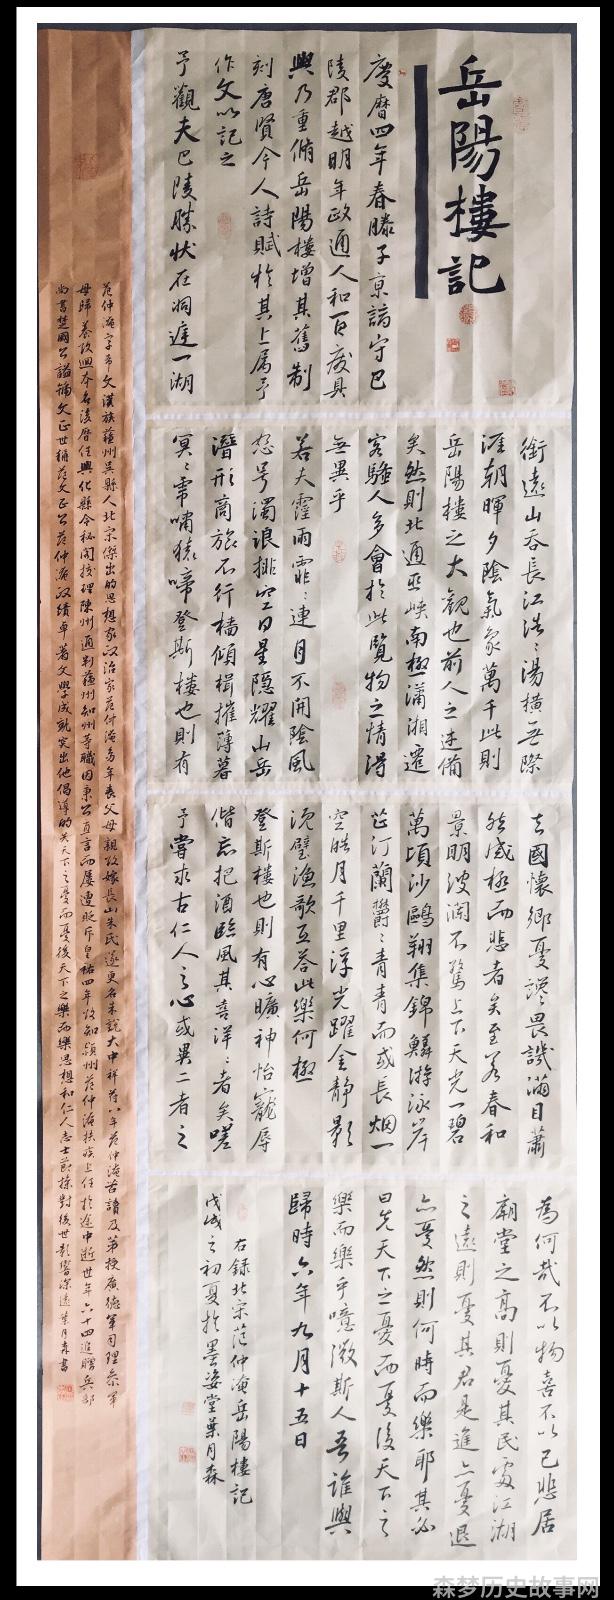 岳陽樓記
慶曆四年春滕子京謫守巴
陵郡越明年政通人和百廢具
興乃重脩岳陽樓增其舊制
刻唐賢今人詩賦於其上属予
作文以記之
予觀夫巴陵勝狀在洞庭一湖
銜遠山吞長江浩〻湯橫無際
涯朝暉夕陰氣象萬千此則
岳陽樓之大觀也前人之述備
矣然則北通巫峽南極瀟湘遷
客騷人多會於此覽物之情得
無異乎
若夫霪雨霏〻連月不開陰風
怒号濁浪排空日星隱耀山岳
潛形商旅不行檣傾楫摧薄暮
冥〻虎嘯猿啼登斯樓也則有
去國懷鄉憂讒畏譏滿目蕭
然感極而悲者矣至若春和
景明波瀾不驚上下天光一碧
萬頃沙鷗翔集錦鱗游泳岸
芷汀蘭鬱〻青青而或長烟一
空皓月千里浮光躍金静影
沉璧漁歌互答此樂何極
登斯樓也則有心曠神怡寵辱
偕忘把酒臨風其喜洋〻者矣嗟
予嘗求古仁人之心或異二者之
為何哉不以物喜不以己悲居
廟堂之高則憂其民處江湖
之遠則憂其君是進亦憂退
亦憂然則何時而樂耶其必
曰先天下之憂而憂後天下之
樂而樂乎噫微斯人吾誰與
歸時六年九月十五日
右録北宋范仲淹岳陽樓記
戊戌之初夏於墨姿堂葉月森
范仲淹字希文漢族蘇州吳縣人北宋傑出的思想家政治家范仲淹幼年喪父母親改嫁長山朱氏遂更名朱說大中祥符八年范仲淹苦讀及第授廣德軍司理參軍
母歸養改回本名後歷任興化縣令秘閣校理陳州通判蘇州知州等職因秉公直言而屢遭貶斥皇祐四年改知潁州范仲淹扶疾上任於途中逝世年六十四追贈兵部
尚書楚國公謚號文正世稱范文正公范仲淹政績卓著文學成就突出他倡導的先天下之憂而憂後天下之樂而樂思想和仁人志士節操對後世影響深遠葉月森書
森梦历史故事网